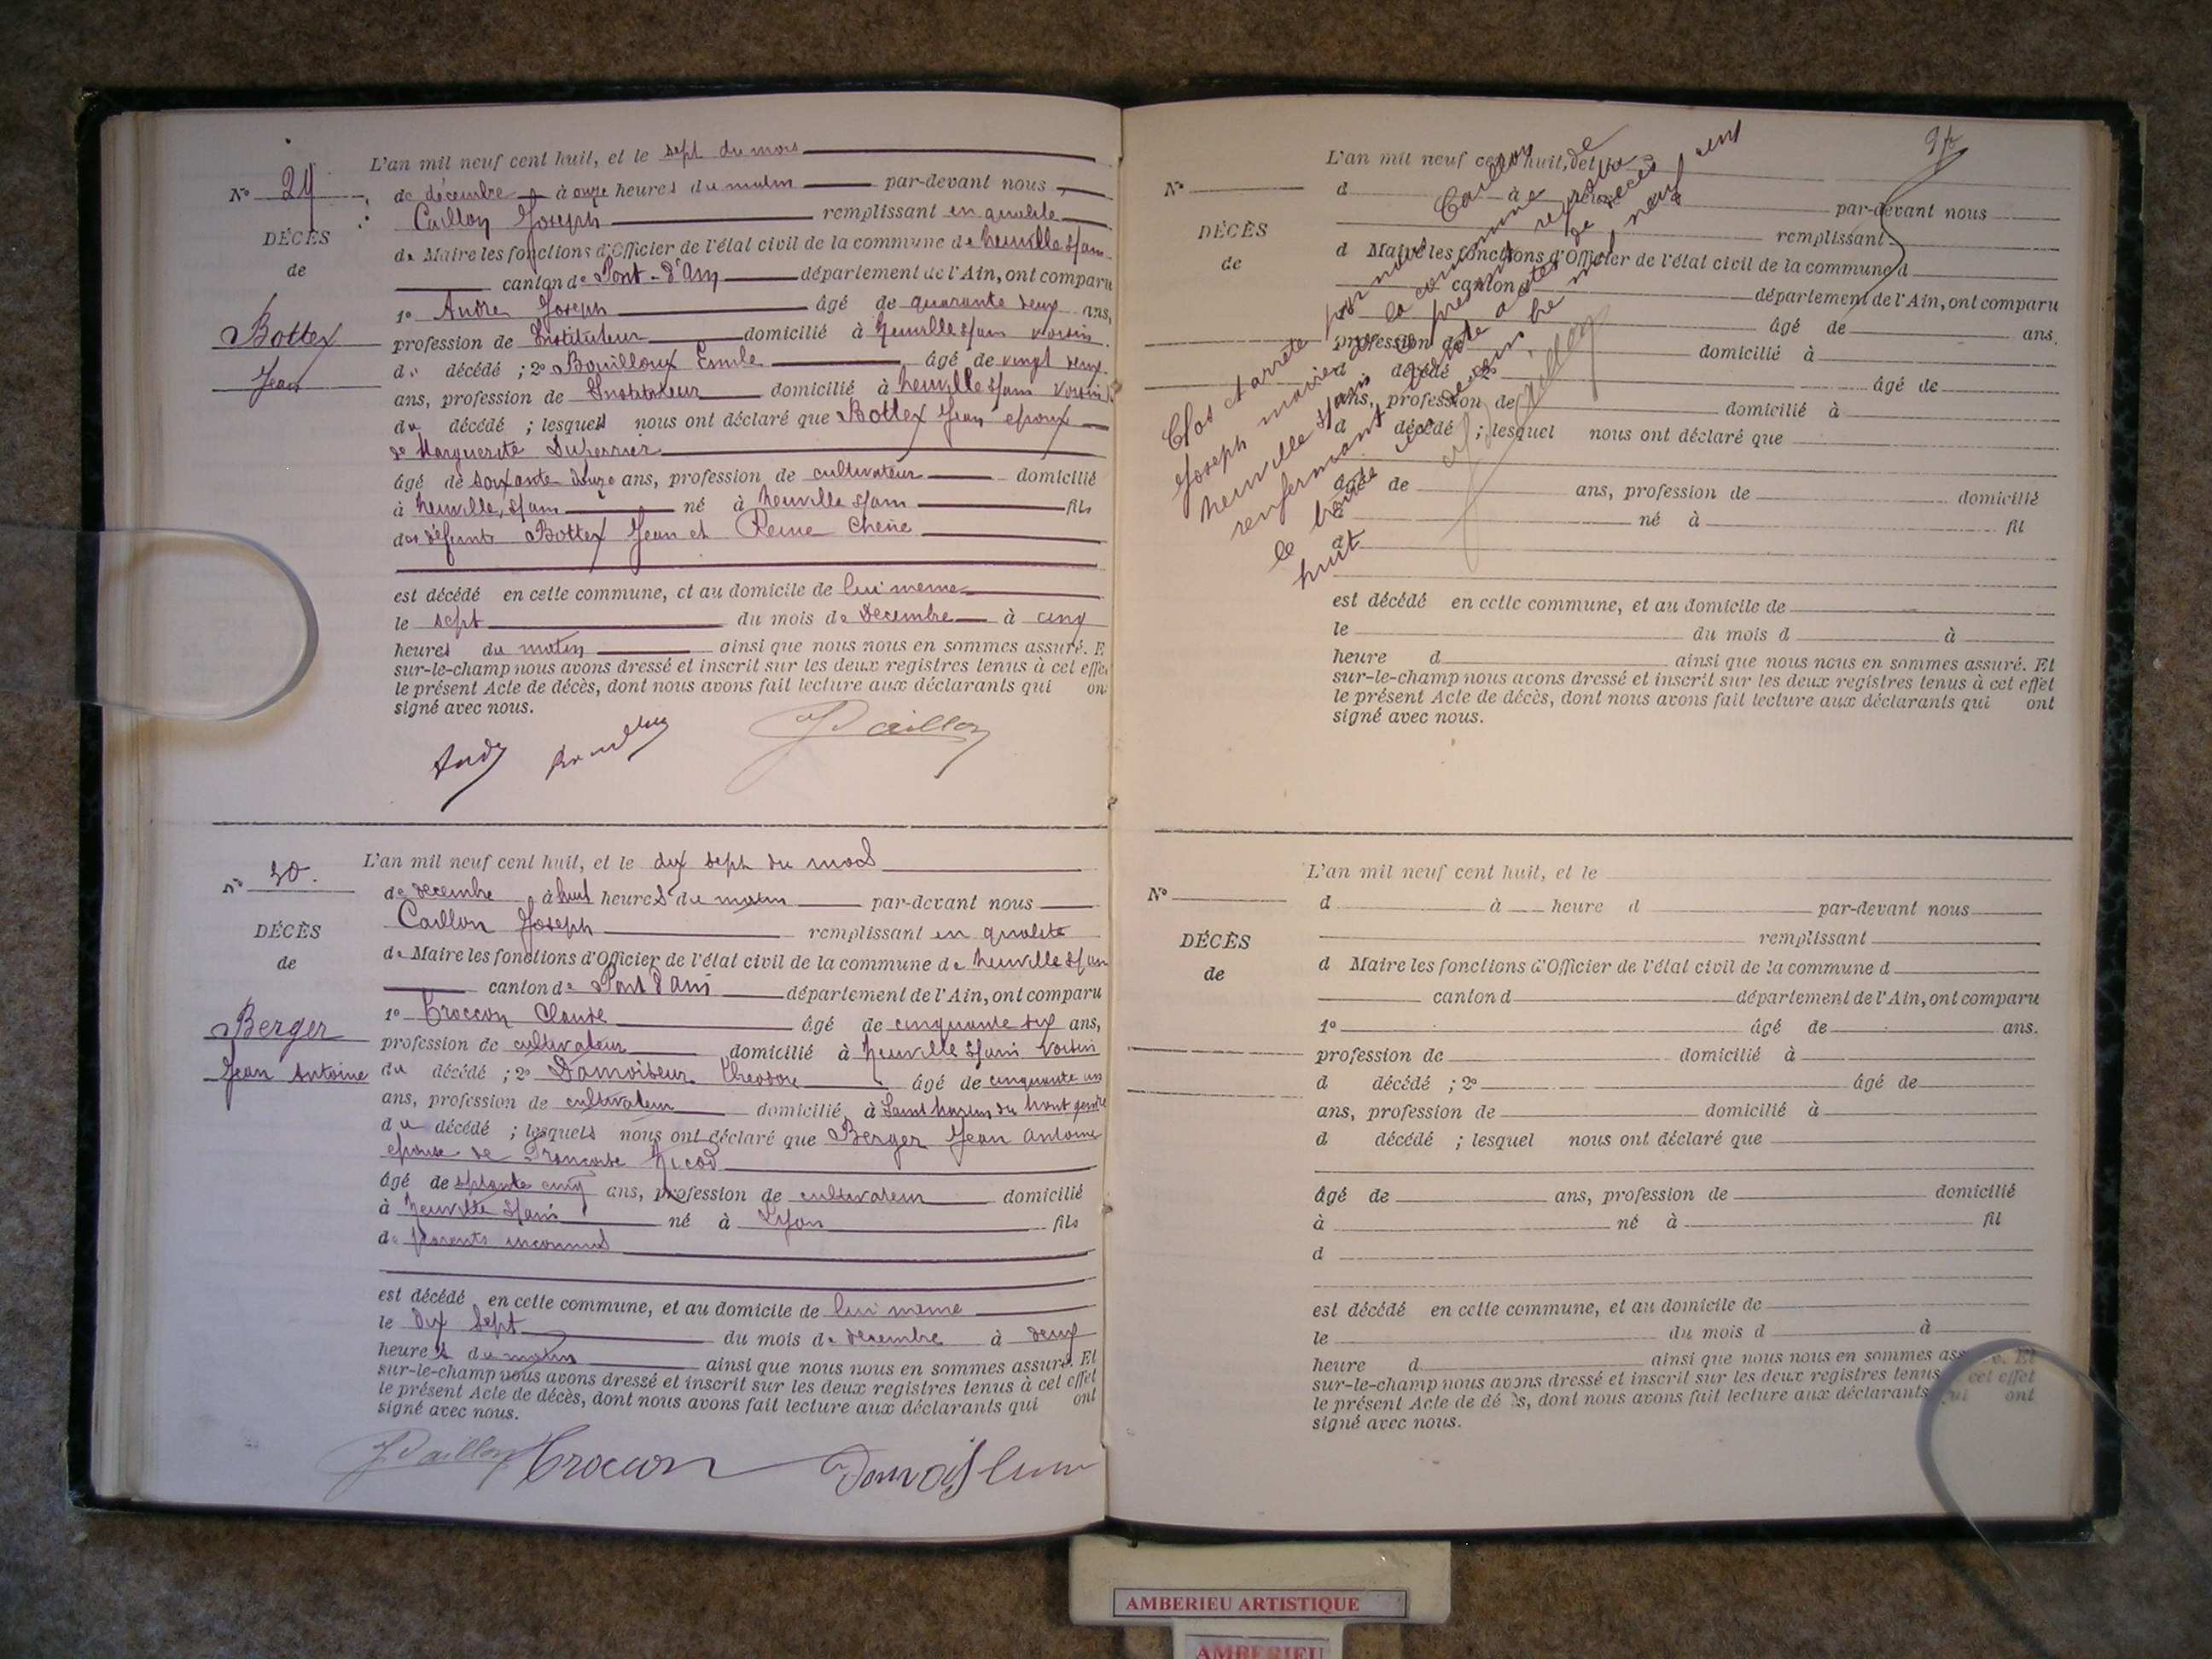 L'an mil neuf cent huit, et le sept du mois
N° 29
de décembre à onze heures du matin par-devant nous
Caillon Joseph remplissant en qualité
DÉCÈS
de Maire les fonctions d'Officier de l'état civil de la commune de Neuville s/ain
de
canton de Pont-d'Ain département de l'Ain, ont comparu
1° André Joseph âgé de quarante deux ans,
Bottex
profession de Instituteur domicilié à Neuville s/ain voisin
du décédé ; 2° Bouilloux Emile âgé de vingt deux
Jean
ans, profession de Instituteur domicilié à Neuville s/ain voisin
du décédé ; lesquels nous ont déclaré que Bottex Jean epoux
de Marguerite
âgé de soixante ans, profession de cultivateur domicilié
à Neuville s/ain né à Neuville s/ain fils
des défunts Bottex Jean et Reine Chêne
est décédé en cette commune, et au domicile de lui meme
le sept du mois de Decembre à cinq
heures du matin ainsi que nous nous en sommes assuré. E
sur-le-champ nous avons dressé et inscrit sur les deux registres tenus à cet effet
le présent Acte de décès, dont nous avons fait lecture aux déclarants qui on
signé avec nous.
André Bouilloux J Caillon
L'an mil neuf cent huit, et le dix sept du mois
N° 30.
de decembre à huit heures du matin par-devant nous
Caillon Joseph remplissant en qualité
DÉCÈS
de Maire les fonctions d'Officier de l'état civil de la commune de Neuville s/ain
de
canton de Pont d'Ain département de l'Ain, ont comparu
1° Croccon Claude âgé de cinquante six ans,
Berger
profession de cultivateur domicilié à Neuville s/ain voisin
Jean Antoine
du décédé ; 2° Damoiseur Theodore âgé de cinquante un
ans, profession de cultivateur domicilié à Saint Martin du Mont gendre
du décédé ; lesquels nous ont déclaré que Berger Jean Antoine
epoux de Francoise Nicod
âgé de septante cinq ans, profession de cultivateur domicilié
à Neuville s/ain né à Lyon fils
de parents inconnus
est décédé en cette commune, et au domicile de lui meme
le dix sept du mois de decembre à deux
heures du matin ainsi que nous nous en sommes assuré. Et
sur-le-champ nous avons dressé et inscrit sur les deux registres tenus à cet effet
le présent Acte de décès, dont nous avons fait lecture aux déclarants qui ont
signé avec nous.
J Caillon Croccon Damoiseur
L'an mil neuf cent huit, et le
N°
d à heure
par-devant nous
DÉCÈS
remplissant
de
d Maire les fonctions d'Officier de l'état civil de la commune d
canton d département de l'Ain, ont comparu
1° âgé de ans.
profession de domicilié à
d décédé ; 2° âgé de
ans, profession de domicilié à
d décédé ; lesquel nous ont déclaré que
âgé de ans, profession de domicilié
à né à fil
d
Clos et arrêté par nous Caillon
Joseph maire de la commune de
Neuville s/ain le présent registre
renfermant trente actes de décès
le trente un decembre mil neuf cent
huit
J Caillon
est décédé en cette commune, et au domicile de
le du mois d à
heure d ainsi que nous nous en sommes assuré. Et
sur-le-champ nous avons dressé et inscrit sur les deux registres tenus à cet effet
le présent Acte de décès, dont nous avons fait lecture aux déclarants qui ont
signé avec nous.
L'an mil neuf cent huit, et le
N°
d à heure d par-devant nous
DÉCÈS
remplissant
de
d Maire les fonctions d'Officier de l'état civil de la commune d
canton d département de l'Ain, ont comparu
1° âgé de ans.
profession de domicilié à
d décédé ; 2° âgé de
ans, profession de domicilié à
d décédé ; lesquel nous ont déclaré que
âgé de ans, profession de domicilié
à né à fil
d
est décédé en cette commune, et au domicile de
le du mois d à
heure d ainsi que nous nous en sommes assuré. Et
sur-le-champ nous avons dressé et inscrit sur les deux registres tenus à cet effet
le présent Acte de décès, dont nous avons fait lecture aux déclarants qui ont
signé avec nous.
AMBERIEU ARTISTIQUE
AMBERIEU